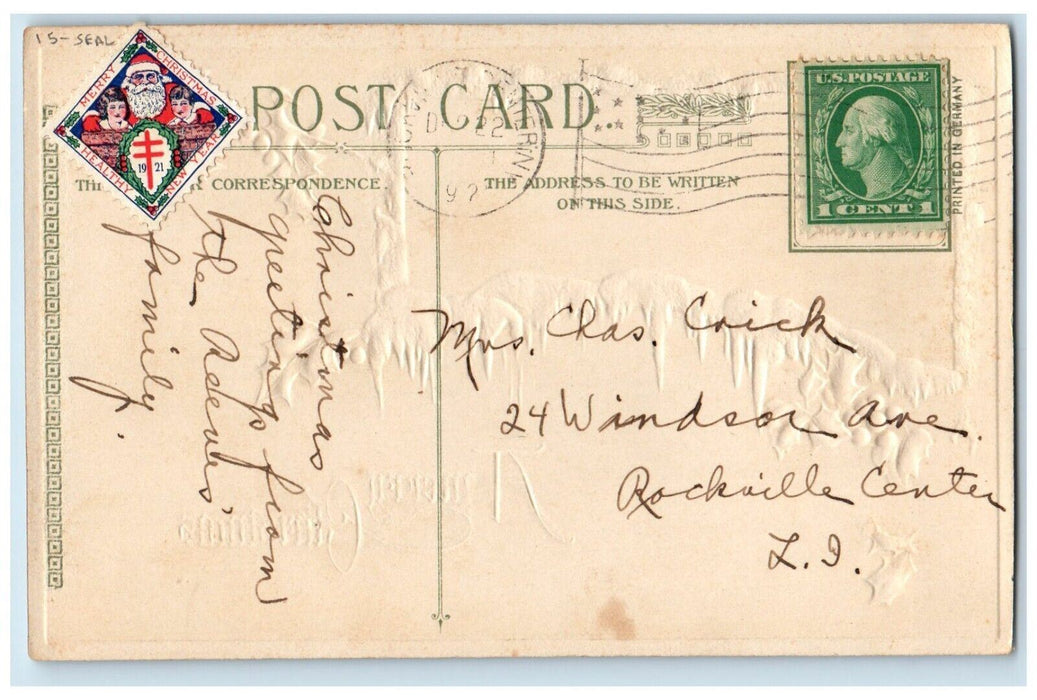 15-SEAL
MERRY CHRISTMAS
HEALTHY NEW YEAR
1921
POST CARD.
D 22
U.S. POSTAGE
1 CENT 1
PRINTED IN GERMANY
CORRESPONDENCE.
THE ADDRESS TO BE WRITTEN
ON THIS SIDE.
Christmas
greetings from
the
family.
Mrs. Chas. Crick
24 Windsor Ave.
Rockville Center
L.I.
A Merry
Christmas